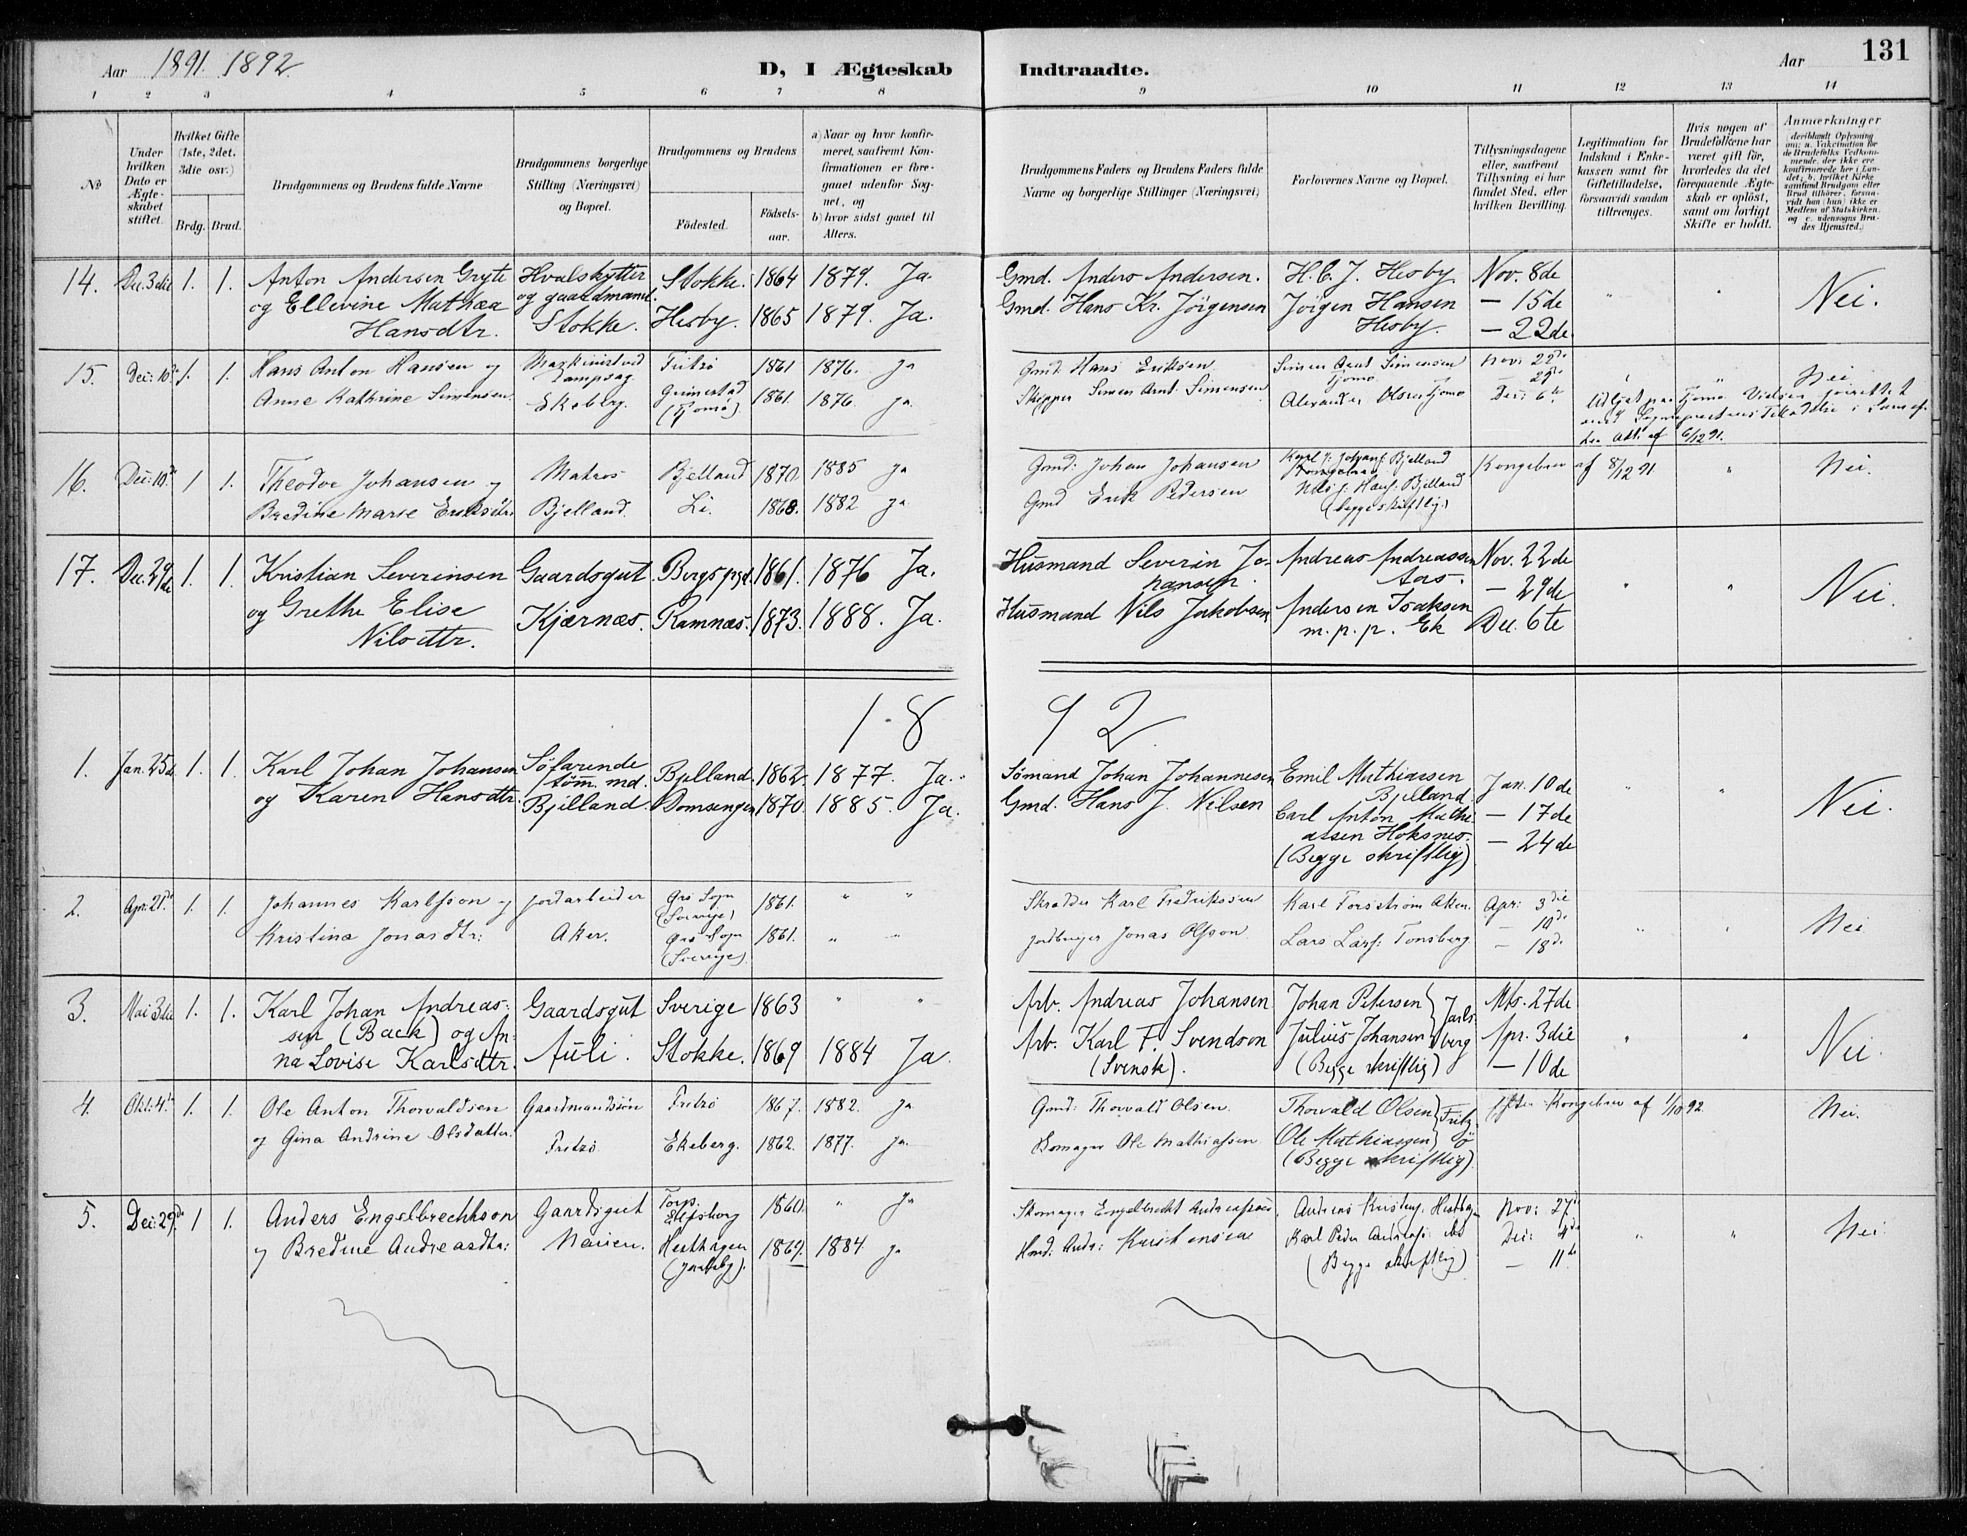 Aar 1891. 1892.
D, I Ægteskab
Indtraadte.
Aar
131
1 2 3 4 5 6 7 8
9 10 11 12 13 14
No
Under hvilken Dato er Ægteskabet stiftet.
Hvilket Gifte (1ste, 2det, 3die osv.)
Brdg. Brud.
Brudgommens og Brudens fulde Navne
Brudgommens borgerlige Stilling (Næringsvei) og Bopæl.
Brudgommens og Brudens
Födested.
Födselsaar.
a) Naar og hvor konfirmeret, saafremt Konfirmationen er foregaaet udenfor Sognet, og
b) hvor sidst gaaet til Alters.
Brudgommens Faders og Brudens Faders fulde Navne og borgerlige Stillinger (Næringsvei)
Forlovernes Navne og Bopæl.
Tillysningsdagene eller, saafremt Tillysning ei har fundet Sted, efter hvilken Bevilling.
Legitimation for Indskud i Enkekassen samt for Giftetilladelse, forsaavidt saadan tiltrænges.
Hvis nogen af Brudefolkene har været gift för, hvorledes da det foregaaende Ægteskab er oplöst, samt om lovligt Skifte er holdt.
Anmærkninger (deriblandt Oplysning om: a. Vakcination for de Brudefolks Vedkommende, der ikke ere konfirmerede her i Landet; b. hvilket Kirkesamfund Brudgom eller Brud tilhörer, forsaavidt han (hun) ikke er Medlem af Statskirken, og c. udensogns Brudes Hjemsted.)
14. Dec. 3die 1. 1. Anton Andersen Gryte Hvalskytter Stokke. 1864 1879. Ja. Gmd. Anders Andersen. H. C. J. Hesby Nov. 8de
og Ellevine Mathea og gaardmand. Gmd. Hans Kr. Jörgensen Jörgen Hansen — 15de " " Nei.
Hansdtr. Stokke. Hesby. 1865 1879. Ja. Hesby. — 22de
15. Dec: 10de 1. 1. Hans Anton Hansen og Maskinist ved Fritsö 1861 1876. Ja Gmd: Hans Eriksen Simen Arnt Simensen Nov: 22de
Dampsag Tjömö — 29de Nei
Anne Kathrine Simensen. Ekeberg. Grimestad 1861. 1876. Ja. Skipper Simen Arnt Simensen Alexander Olsen Tjömö Dec: 6te
(Tjömö) Udlyst paa Tjömö. Vielsen forrettet
6/12 91.
16. Dec: 10de 1 1. Theodor Johansen og Matros Bjelland 1870. 1885 Ja Gmd: Johan Johansen Karl J. Johans. Bjelland Kongebrev af 8/12 91 " Nei.
Bredine Marie Eriksdtr. Bjelland. Li. 1868. 1882 Ja Gmd Erik Pedersen Nils J. Hans. Bjelland
(begge skriftlig)
17. Dec. 29de 1. 1. Kristian Severinsen Gaardsgut Bergs prgd. 1861. 1876 Ja. Husmand Severin Jo- Andreas Andreassen Nov. 22de
hansen. Aas. — 29de " " Nei.
og Grethe Elise Kjærnæs. Ramnæs. 1873. 1888. Ja. Husmand Nils Jakobsen Andersen Isaksen Dec. 6te
Nilsdtr. m. p. p. Ek
1892
1. Jan. 25de 1. 1. Karl Johan Johansen Söfarende Bjelland. 1862. 1877. Ja. Sömand Johan Johannesen Emil Mathiassen Jan. 10de
tömmd. Bjelland
og Karen Hansdtr. Bjelland. Domsengen 1870. 1885. Ja. Gmd. Hans J. Nilsen Carl Anton Mathi- — 17de " " Nei.
assen Hoksnes. — 24de
(Begge skriftlig)
2. Apr: 21de 1. 1. Johannes Karlsson og Jordarbeider 1861. " " Skrædder Karl Fredrikssen Karl Forsström Aker. Apr: 3die
(Sverige) — 10de
Kristina Jonasdtr: Aker. 1861. " " Jordbruger Jonas Olsson Lars Lars: Tönsberg — 18de " " Nei
(Sverige).
3. Mai 3die 1. 1. Karl Johan Andreas- Gaardsgut Sverige 1863 " " Arb. Andreas Johansen Johan Petersen Jarls- Mts. 27de
sen (Back) og An- Arb. Karl F. Svendson Julius Johansen berg Apr. 3die " " Nei.
na Lovise Karlsdtr. Auli. Stokke. 1869 1884 Ja. (Svensk). (Begge skriftlig) — 10de
4. Okt: 4de 1. 1. Ole Anton Thorvaldsen Gaardmandssön Fritsö 1867. 1882. Ja Gmd: Thorvald Olsen. Thorvald Olsen Frits- efter Kongebrev af 1/10 92. Nei.
og Gina Andrine Olsdatter. Fritsö Ekeberg. 1862. 1877. Ja. Skomager Ole Mathiassen Ole Mathiassen ö
(Begge skriftlig).
5. Dec: 29de 1 1. Anders Engelbrechtson Gaardsgut Torp. 1860. " Ja Skomager Engelbrecht Andreas Kristens. Nov: 27de
Elfsborg
og Bredine Andreasdtr: Nauen. Hesthagen 1869. 1884. Ja Hmd: Andr: Kristensen Karl Peder Dec: 4de " " Nei.
(Begge skriftlig) — 11te